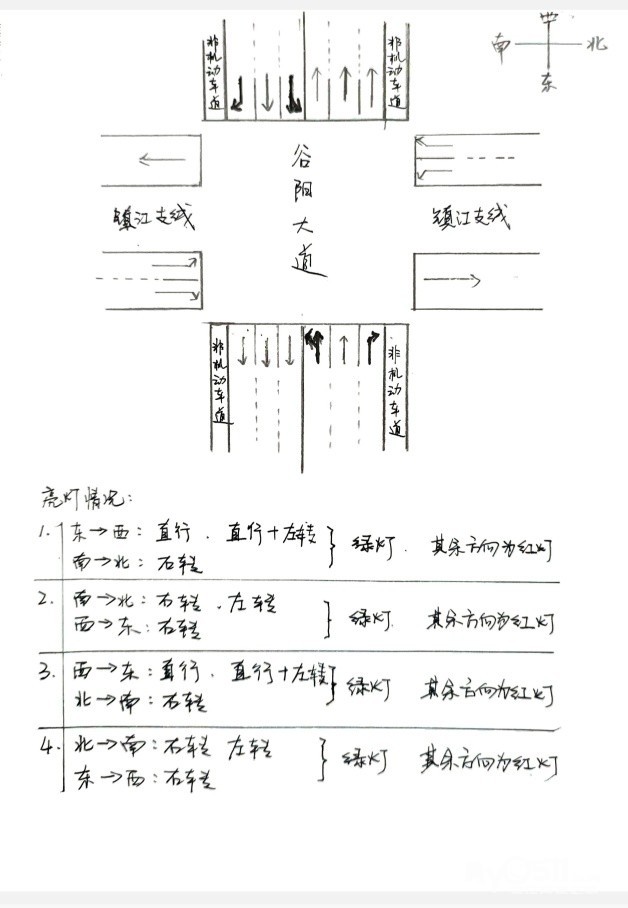 西
南
北
东
非机动车道
非机动车道
谷阳大道
镇江支线
镇江支线
非机动车道
非机动车道
亮灯情况:
1. 东→西: 直行. 直行+左转 } 绿灯. 其余方向为红灯
南→北: 右转
2. 南→北: 右转. 左转 } 绿灯. 其余方向为红灯
西→东: 右转
3. 西→东: 直行. 直行+左转 } 绿灯 其余方向为红灯
北→南: 右转
4. 北→南: 右转 左转 } 绿灯 其余方向为红灯
东→西: 右转